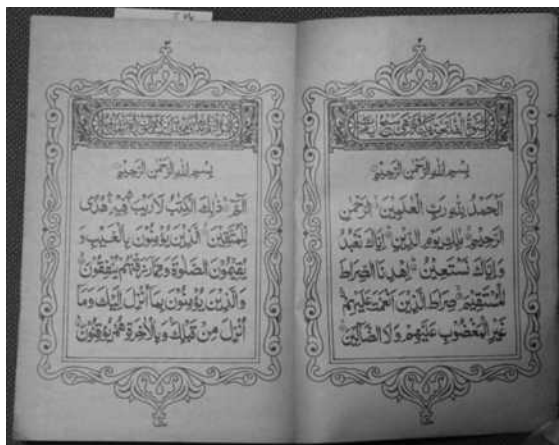 بِسْمِ اللهِ الرَّحْمٰنِ الرَّحِيْمِ
اَلْحَمْدُ لِلّٰهِ رَبِّ الْعٰلَمِيْنَ الرَّحْمٰنِ
الرَّحِيْمِ مٰلِكِ يَوْمِ الدِّيْنِ اِيَّاكَ نَعْبُدُ
وَاِيَّاكَ نَسْتَعِيْنُ اِهْدِنَا الصِّرَاطَ
الْمُسْتَقِيْمَ صِرَاطَ الَّذِيْنَ اَنْعَمْتَ عَلَيْهِمْ
غَيْرِ الْمَغْضُوْبِ عَلَيْهِمْ وَلَا الضَّآلِّيْنَ
بِسْمِ اللهِ الرَّحْمٰنِ الرَّحِيْمِ
الٓمّٓ ذٰلِكَ الْكِتٰبُ لَا رَيْبَ فِيْهِ هُدًى
لِّلْمُتَّقِيْنَ الَّذِيْنَ يُؤْمِنُوْنَ بِالْغَيْبِ وَ
يُقِيْمُوْنَ الصَّلٰوةَ وَمِمَّا رَزَقْنٰهُمْ يُنْفِقُوْنَ
وَالَّذِيْنَ يُؤْمِنُوْنَ بِمَآ اُنْزِلَ اِلَيْكَ وَمَآ
اُنْزِلَ مِنْ قَبْلِكَ وَبِالْاٰخِرَةِ هُمْ يُوْقِنُوْنَ